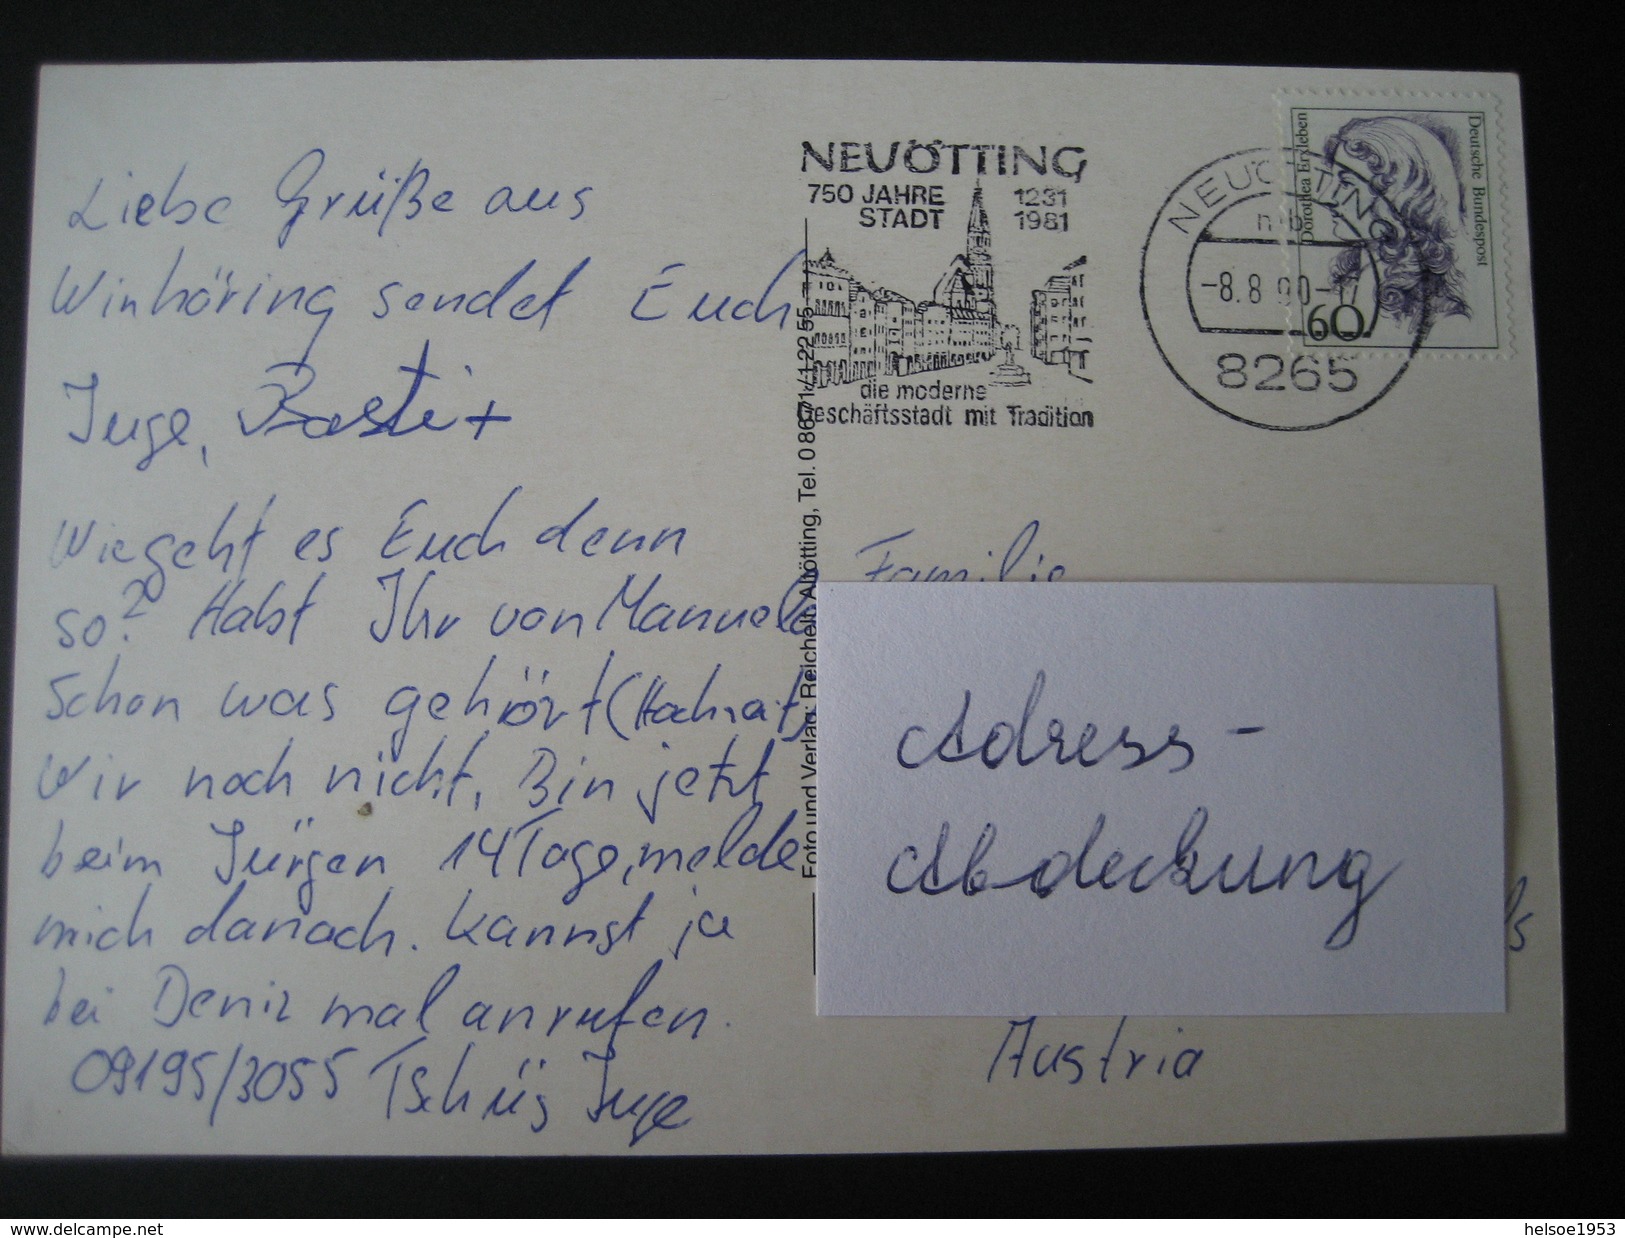 Liebe Grüße aus
Winhöring sendet Euch
Inge, Basti +
Wie geht es Euch denn
so? Habt Ihr von Manuela
schon was gehört (Hochzeit)
Wir noch nicht. Bin jetzt
beim Jürgen 14 Tage, melde
mich danach. Kannst ja
bei Deniz mal anrufen.
09195/3055 Tschüs Inge
Foto und Verlag: Reichelt, Altötting, Tel. 0 86 71/1 22 55
NEUÖTTING
750 JAHRE 1231
STADT 1981
die moderne
Geschäftsstadt mit Tradition
NEUÖTTING
-8.8.90-
8265
Dorothea Erxleben
Deutsche Bundespost
60
Familie
Adress-
Abdeckung
ls
Austria
www.delcampe.net
helsoe1953